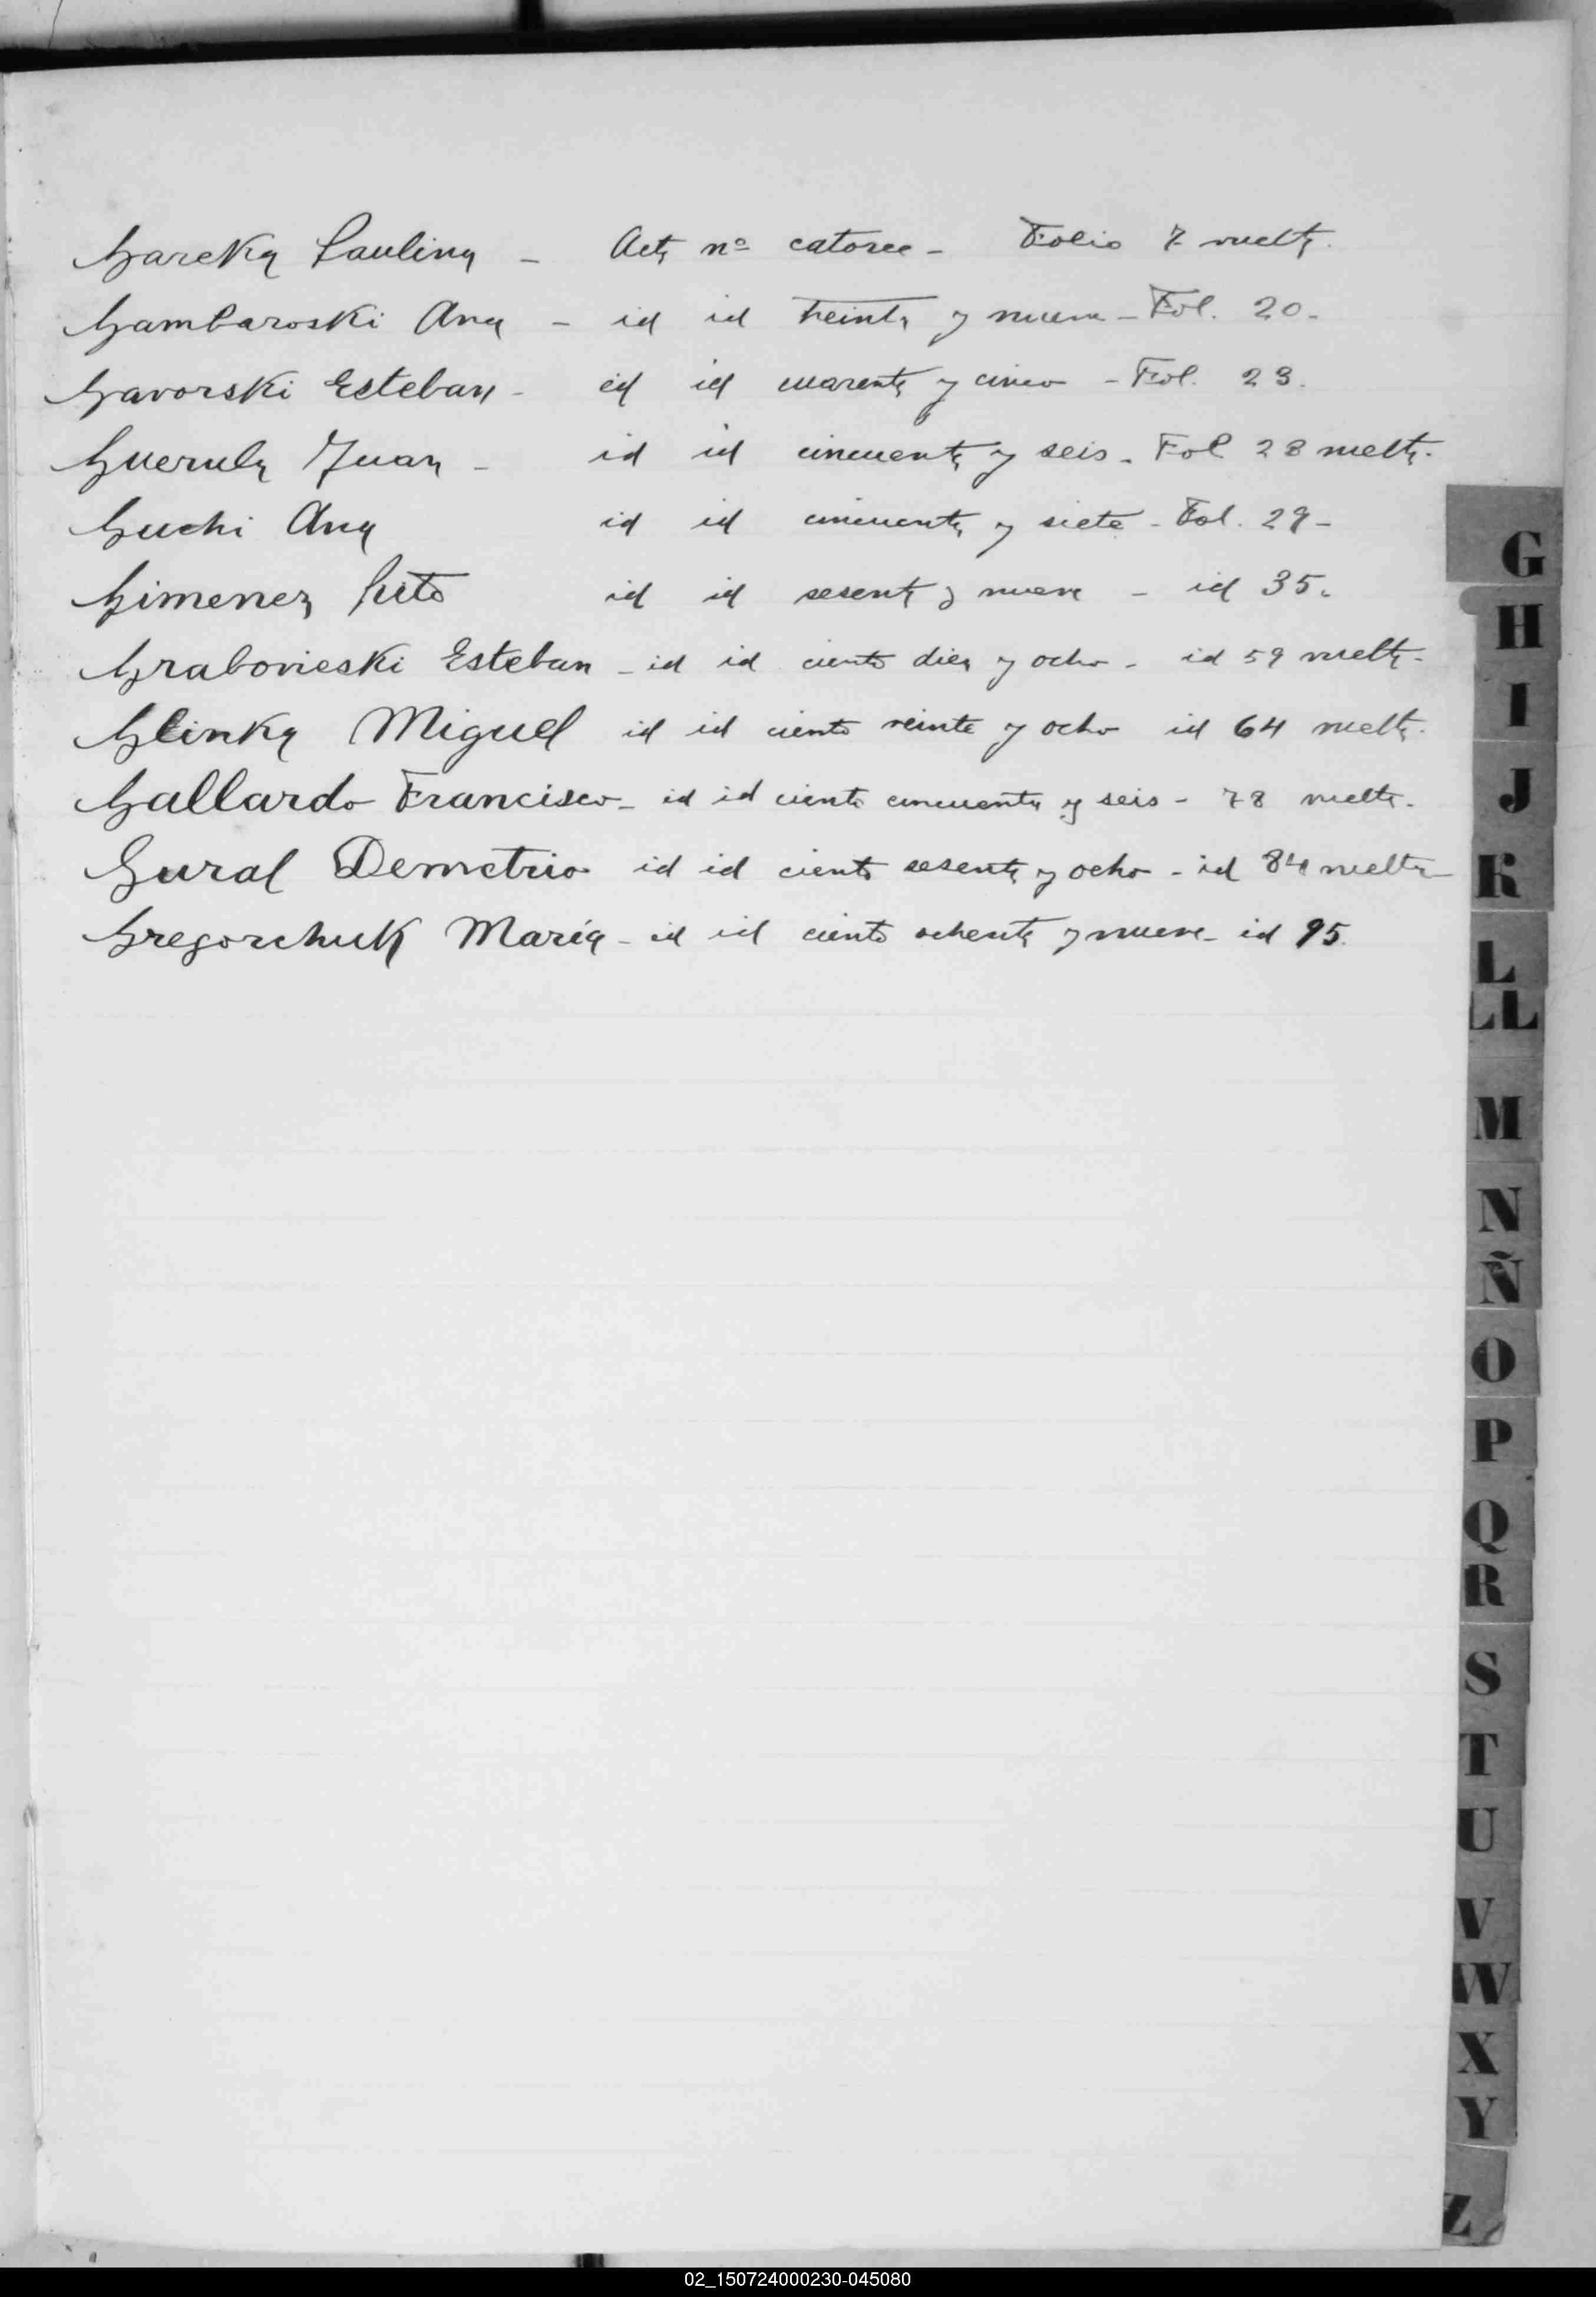 Gareka Paulina - Acta nº catorce - Folio 7 vuelta.
Gambaroski Ana - id id treinta y nueve - Fol. 20.
Gavorski Esteban - id id cuarenta y cinco - Fol. 23.
Guerula Juan - id id cincuenta y seis - Fol 28 vuelta.
Guchi Ana id id cincuenta y siete - Fol. 29 -
Gimenez id id sesenta y nueve - id 35.
Grabovieski Esteban - id id ciento diez y ocho - id 59 vuelta.
Glinka Miguel id id ciento veinte y ocho id 64 vuelta.
Gallardo Francisco - id id ciento cincuenta y seis - 78 vuelta.
Gural Demetrio id id ciento sesenta y ocho - id 84 vuelta
Gregorchuk María - id id ciento ochenta y nueve - id 95.
G
H
I
J
K
L
LL
M
N
Ñ
O
P
Q
R
S
T
U
V
W
X
Y
Z
02_150724000230-045080